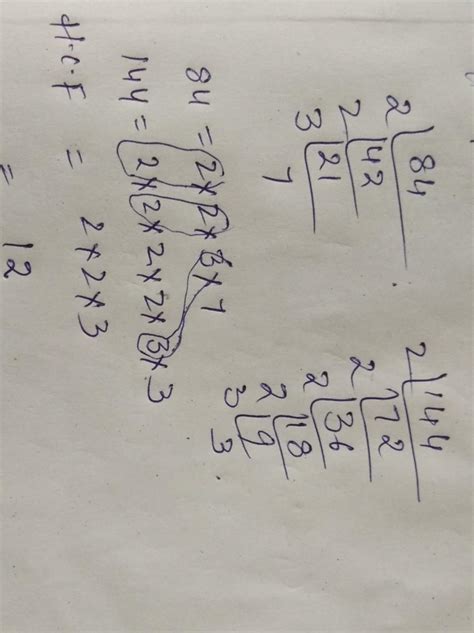 2 | 84
2 | 42
3 | 21
7
2 | 144
2 | 72
2 | 36
2 | 18
3 | 9
3
84 = 2 × 2 × 3 × 7
144 = 2 × 2 × 2 × 2 × 3 × 3
H.C.F = 2 × 2 × 3
= 12